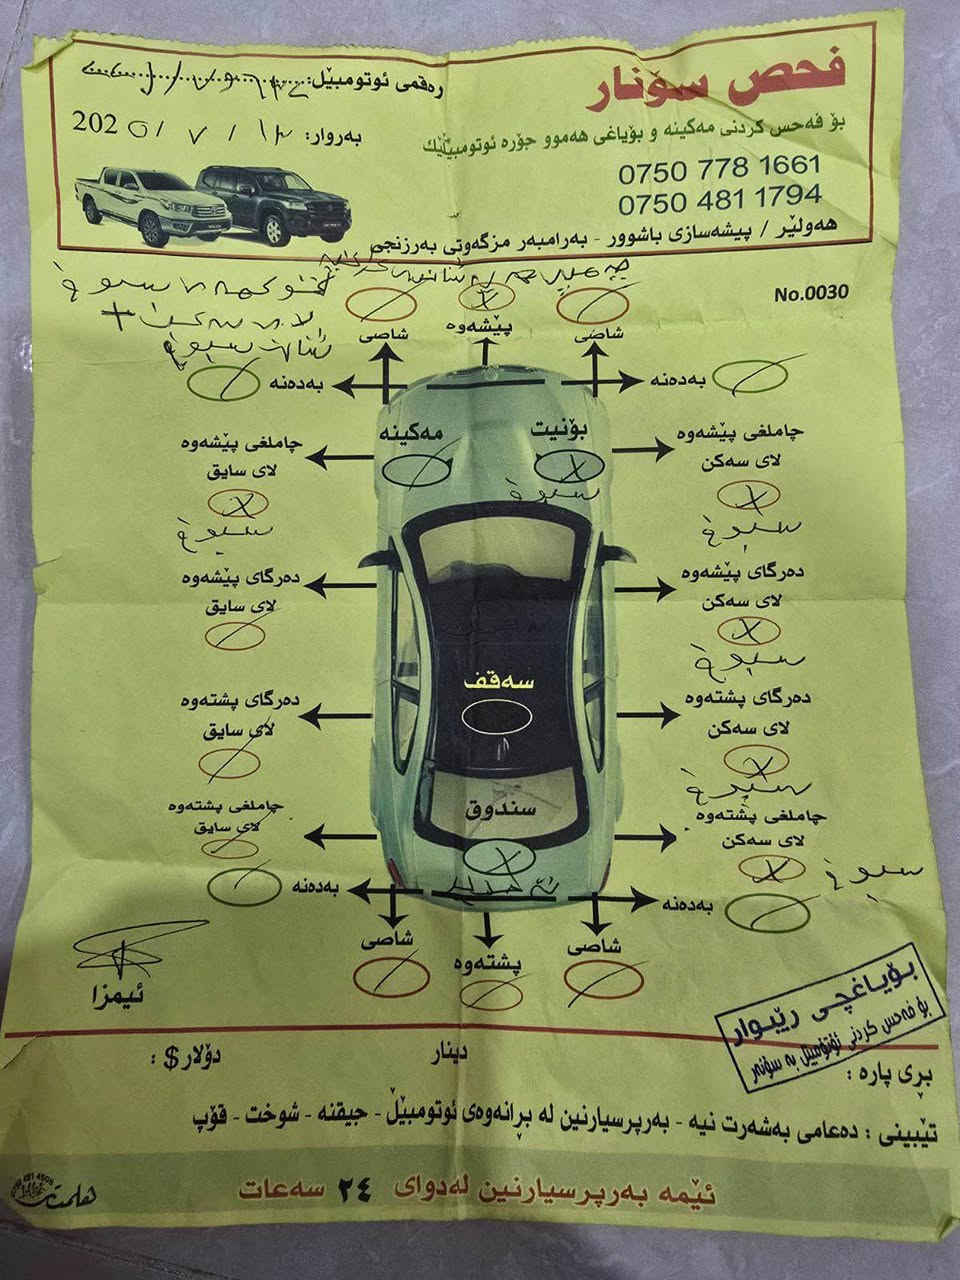 فحص سۆنار
بۆ فەحس کردنی مەکینە و بۆیاغی هەموو جۆرە ئوتومبێلێك
0750 778 1661
0750 481 1794
هەولێر / پیشەسازی باشوور - بەرامبەر مزگەوتی بەرزنجی
رەقمی ئوتومبێل:
بەروار: ١٣ / ٧ / 2025
No.0030
شاصی
پێشەوە
شاصی
بەدەنە
بەدەنە
مەکینە
بۆنیت
سبوغ
چاملغی پێشەوە
لای سایق
سبوغ
چاملغی پێشەوە
لای سەکن
سبوغ
دەرگای پێشەوە
لای سایق
دەرگای پێشەوە
لای سەکن
سبوغ
سەقف
دەرگای پشتەوە
لای سایق
دەرگای پشتەوە
لای سەکن
سبوغ
سندوق
چاملغی پشتەوە
لای سایق
چاملغی پشتەوە
لای سەکن
سبوغ
بەدەنە
بەدەنە
شاصی
پشتەوە
شاصی
ئیمزا
بۆیاغچی رێبوار
بۆ فەحس کردنی ئۆتۆمبێل بە سۆنەر
بری پارە :
دینار
دۆلار$ :
تێبینی : دەعامی بەشەرت نیە - بەرپرسیارنین لە برانەوەی ئوتومبێڵ - جیقنە - شوخت - قۆپ
ئێمە بەرپرسیارنین لەدوای ٢٤ سەعات
هەڵمەت